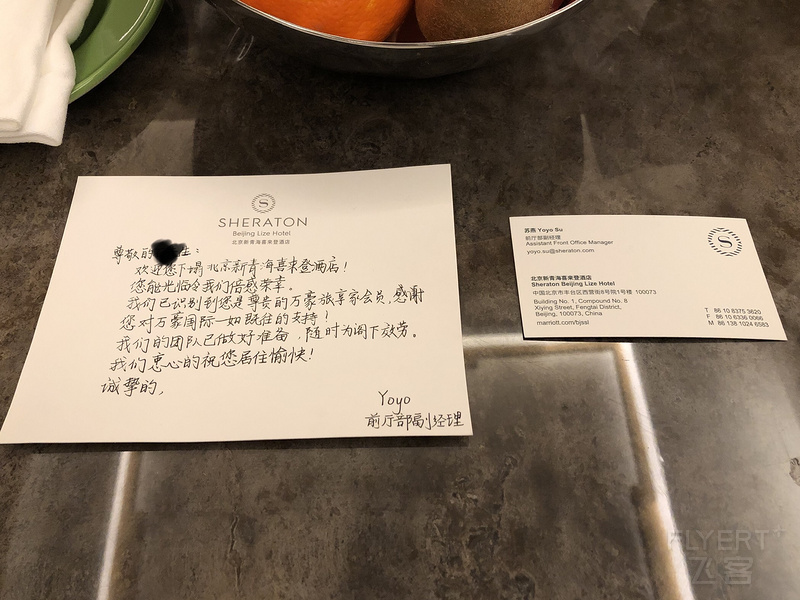 SHERATON
Beijing Lize Hotel
北京新青海喜来登酒店
尊敬的 生：
欢迎您下榻北京新青海喜来登酒店！
您能光临令我们倍感荣幸。
我们已识别到您是尊贵的万豪旅享家会员，感谢
您对万豪国际一如既往的支持！
我们的团队已做好准备，随时为阁下效劳。
我们衷心的祝您居住愉快！
诚挚的，
Yoyo
前厅部副经理
苏燕 Yoyo Su
前厅部副经理
Assistant Front Office Manager
yoyo.su@sheraton.com
S
北京新青海喜來登酒店
Sheraton Beijing Lize Hotel
中国北京市丰台区西营街8号院1号楼 100073
Building No. 1, Compound No. 8
Xiying Street, Fengtai District,
Beijing, 100073, China
marriott.com/bjssl
T 86 10 8375 3620
F 86 10 6336 0066
M 86 138 1024 6583
FLYERT+
飞客